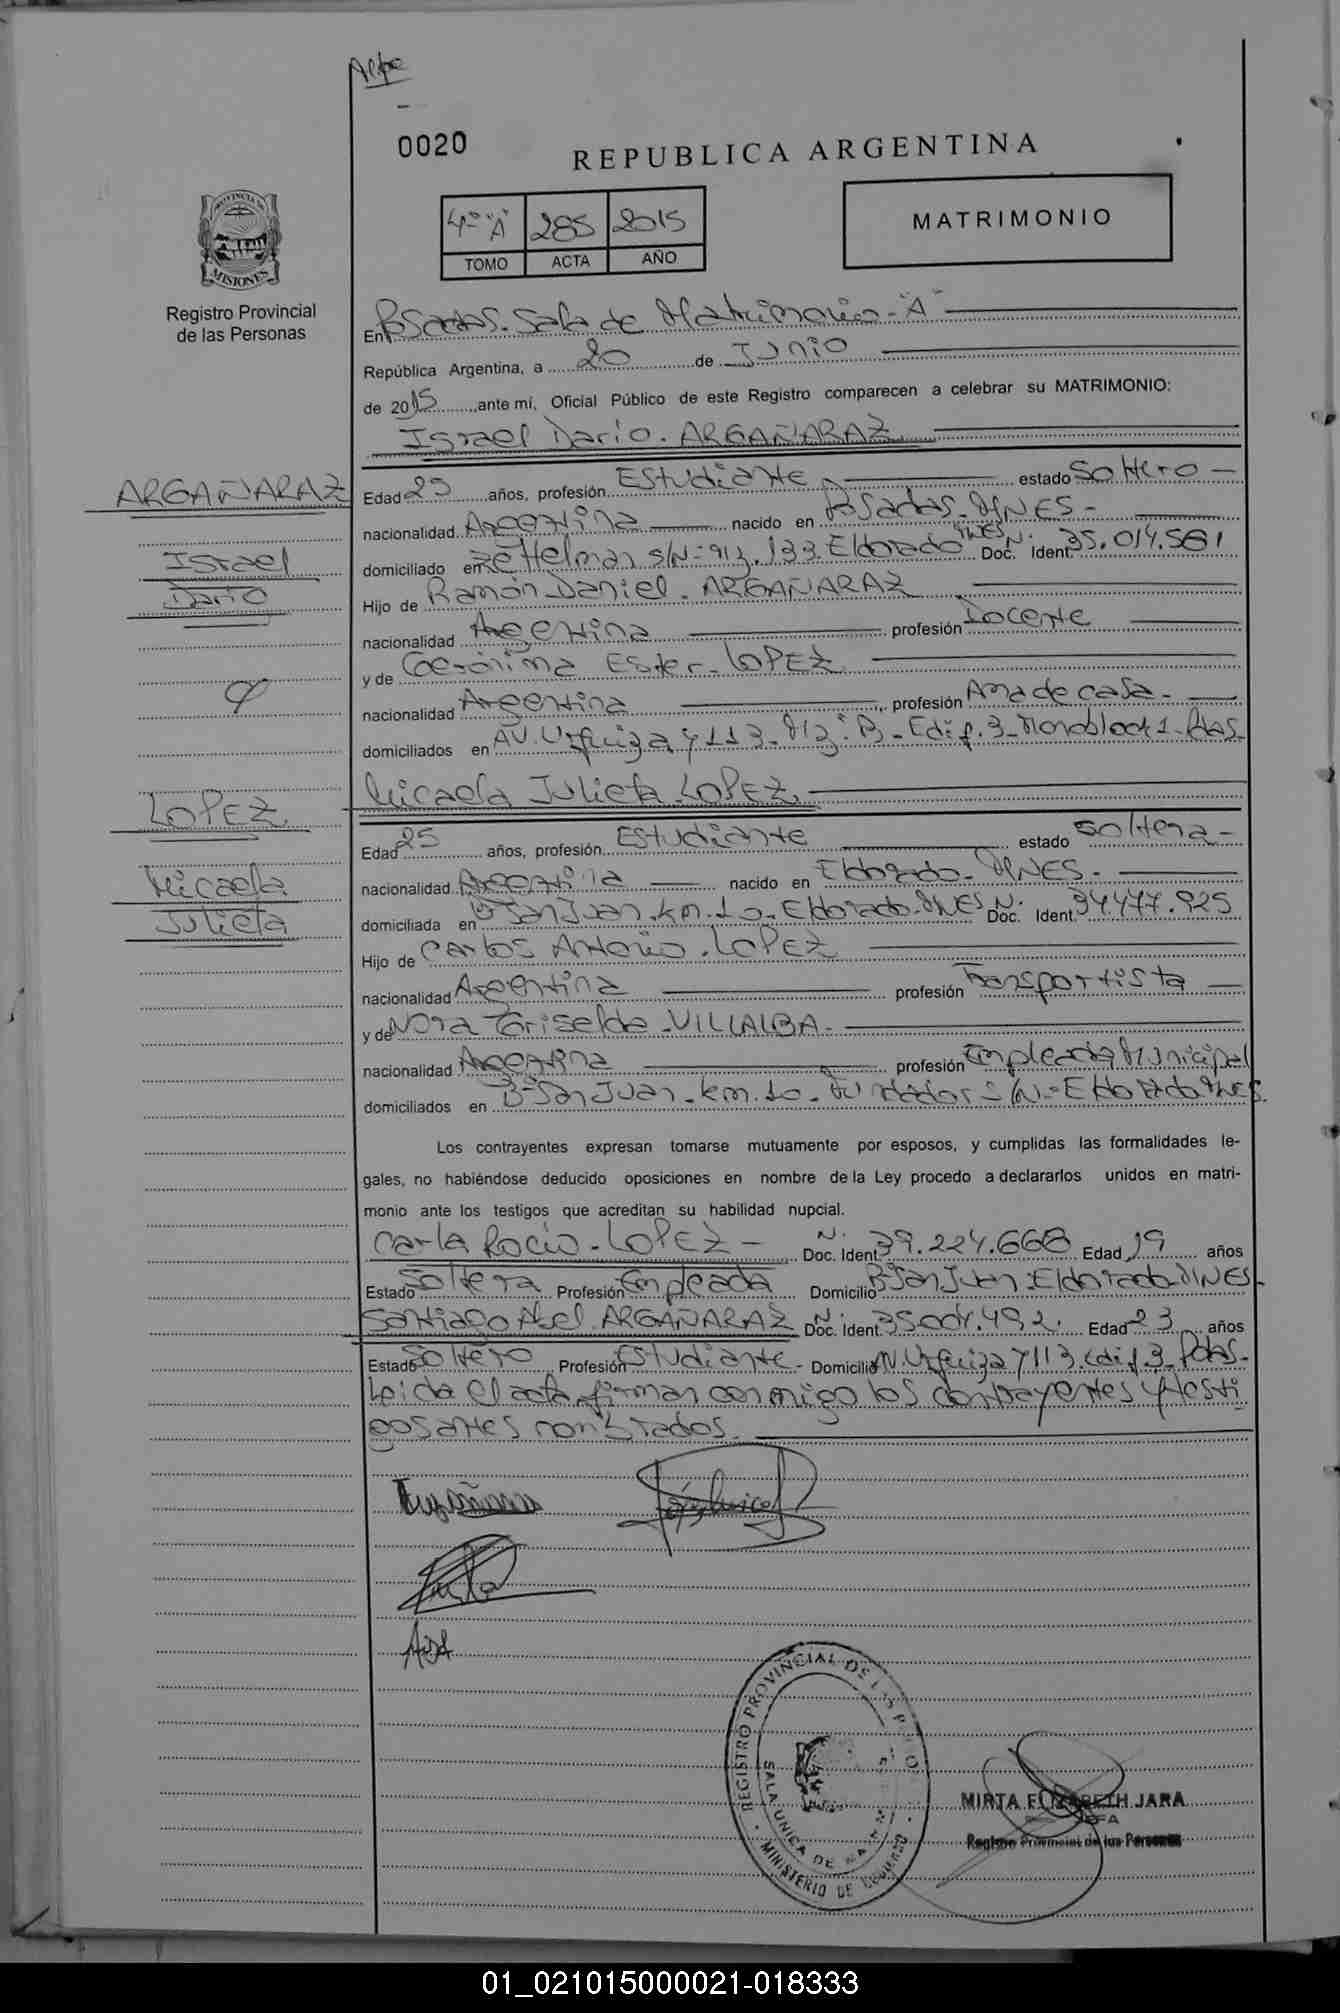 0020
REPUBLICA ARGENTINA
4º "A" 285 2015
TOMO ACTA AÑO
MATRIMONIO
PROVINCIA DE
MISIONES
Registro Provincial
de las Personas
En Posadas. Sala de Matrimonio. "A"
República Argentina, a 20 de Junio
de 2015, ante mí, Oficial Público de este Registro comparecen a celebrar su MATRIMONIO:
Israel Dario. ARGAÑARAZ
ARGAÑARAZ
Israel
Dario
Edad 25 años, profesión Estudiante estado Soltero
nacionalidad Argentina nacido en Posadas. MNES.
domiciliado en Helman s/N- 133. Eldorado MNES Doc. Ident N. 35.014.561
Hijo de Ramón Daniel. ARGAÑARAZ
nacionalidad Argentina profesión Docente
y de Gerónima Ester. LOPEZ
nacionalidad Argentina profesión Ama de casa.
domiciliados en AV. Urquiza y 113 - Mz: B - Edif. 3 - Monoblock 1 - Pdas.
LOPEZ
Micaela
Julieta
Micaela Julieta LOPEZ
Edad 25 años, profesión Estudiante estado Soltera
nacionalidad Argentina nacido en Eldorado. MNES.
domiciliada en Bº San Juan. km. 10. Eldorado. MNES Doc. Ident N. 34.477.925
Hijo de Carlos Antonio. LOPEZ
nacionalidad Argentina profesión Transportista
y de Nora Griselda VILLALBA.
nacionalidad Argentina profesión Empleada Municipal
domiciliados en Bº San Juan. km. 10. s/N- Eldorado MNES.
Los contrayentes expresan tomarse mutuamente por esposos, y cumplidas las formalidades le-
gales, no habiéndose deducido oposiciones en nombre de la Ley procedo a declararlos unidos en matri-
monio ante los testigos que acreditan su habilidad nupcial.
Carla Rocio. LOPEZ Doc. Ident N. 39.224.668 Edad 19 años
Estado Soltera Profesión Empleada Domicilio Bº San Juan. Eldorado MNES
Santiago Abel ARGAÑARAZ Doc. Ident N. 492. Edad 23 años
Estado Soltero Profesión Estudiante Domicilio AV. Urquiza y 113. Edif 3. Pdas.
Leida el acta firman conmigo los contrayentes y testi
gos antes nombrados.
REGISTRO PROVINCIAL DE LAS
SALA UNICA DE
MINISTERIO DE GOBIERNO
MIRTA ELIZABETH JARA
JEFA
Registro Provincial de las Personas
01_021015000021-018333